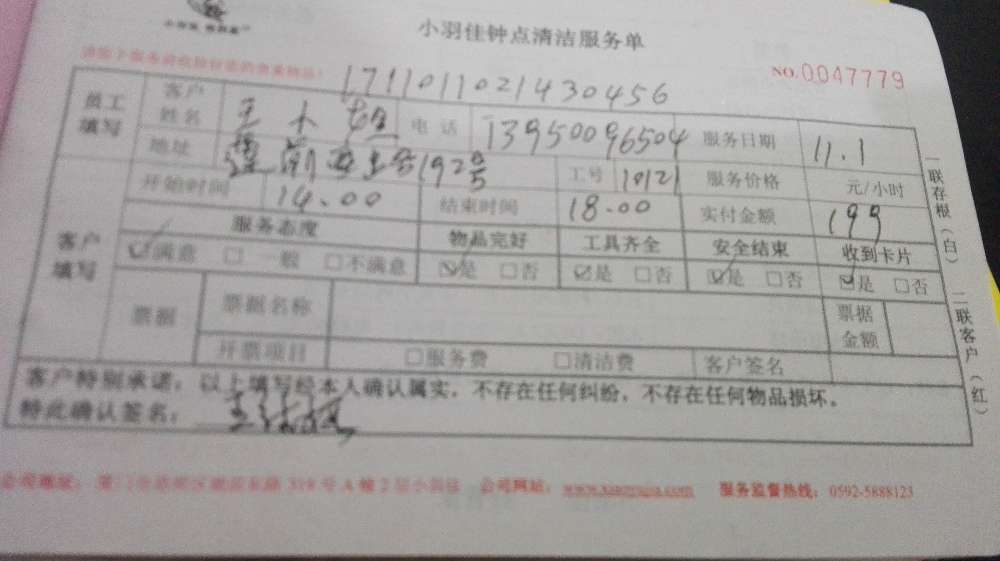 小羽佳钟点清洁服务单
NO.0047779
171101102143​0456
员工填写
客户姓名 王小姐 电话 13950096504 服务日期 11.1
地址 192号 工号 10121 服务价格 元/小时
开始时间 14.00 结束时间 18.00 实付金额 199
客户填写
服务态度 物品完好 工具齐全 安全结束 收到卡片
☑满意 □一般 □不满意 ☑是 □否 ☑是 □否 ☑是 □否 ☑是 □否
票据 票据名称 票据金额
开票项目 □服务费 □清洁费 客户签名
客户特别承诺：以上填写经本人确认属实，不存在任何纠纷，不存在任何物品损坏。
特此确认签名：
公司地址： 319号A幢2层小羽佳 公司网站： 服务监督热线：0592-5888123
一联存根（白） 二联客户（红）